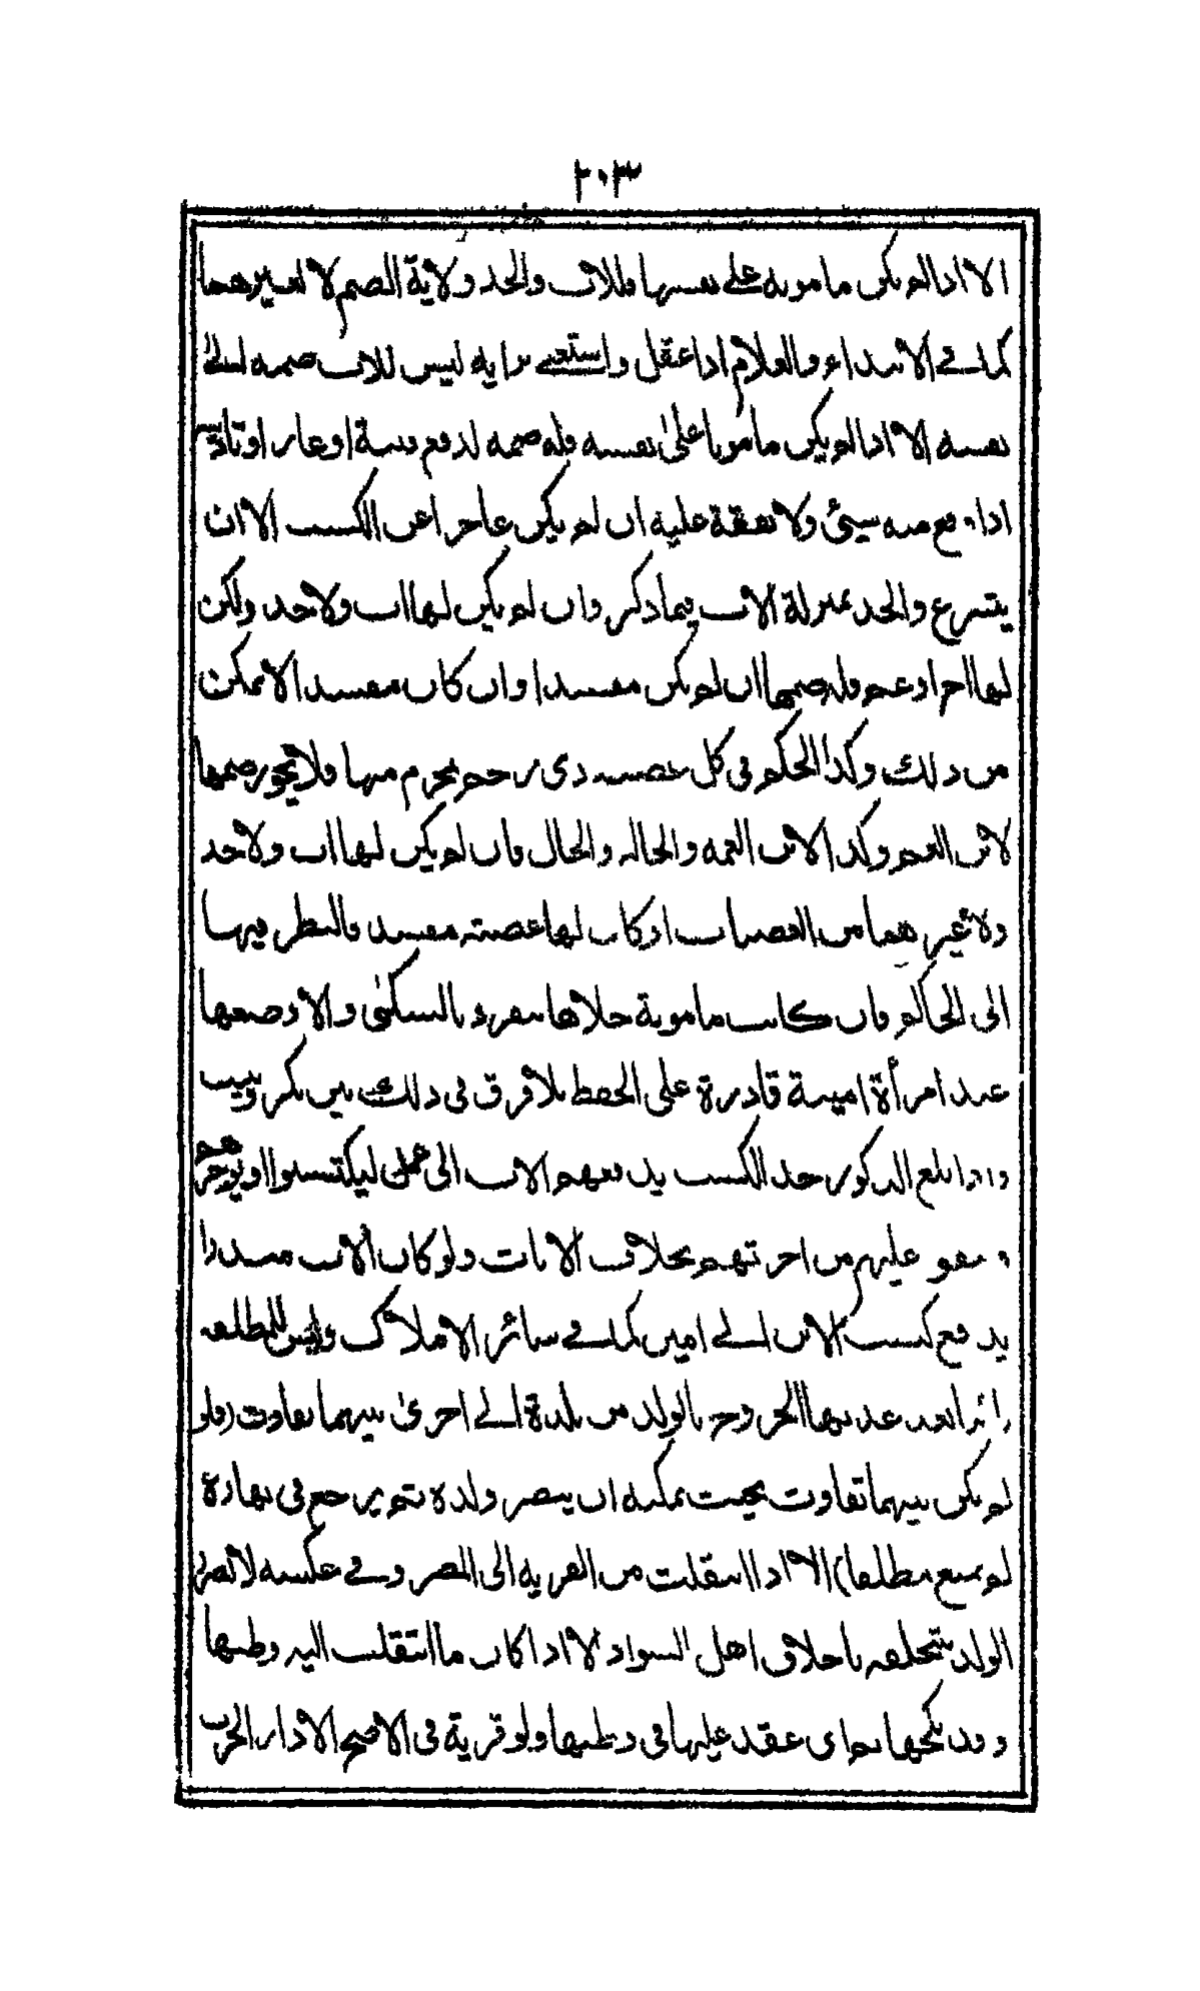 ٢٠٣
الا اذا لم يكن مامونه على نفسها فللاب والجد ولاية الضم لا لغيرهما
كما في الابتداء والغلام اذا عقل واستغنى برايه ليس للاب ضمه الى
نفسه الا اذا لم يكن مامونا على نفسه فله ضمه لدفع فتنة او عار او تاديبه
اذا وقع منه شئ ولا نفقة عليه ان لم يكن عاجزا عن الكسب الا ان
يتبرع والجد بمنزلة الاب فيما ذكر وان لم يكن لها اب ولا جد ولكن
لها اخ او عم فله ضمها ان لم يكن مفسدا وان كان مفسدا لا يمكن
من ذلك وكذا الحكم في كل عصبه ذى رحم محرم منها فلا يجوز ضمها
لابن العم وكذا لابن العمه والخاله والخال فان لم يكن لها اب ولا جد
ولا غيرهما من العصبات او كان لها عصبته مفسد فالنظر فيها
الى الحاكم فان كانت مامونة خلاها تنفرد بالسكنى والا وضعها
عند امرأة امينة قادرة على الحفظ بلا فرق في ذلك بين بكر وثيب
واذا بلغ الذكور حد الكسب يدفعهم الاب الى عمل ليكتسبوا او يؤجرهم
وينفق عليهم من اجرتهم بخلاف الاناث ولو كان الاب مبذرا
يدفع كسب الابن الى امين كما في سائر الاملاك وليس للمطلقه
بائنا بعد عدتها الخروج بالولد من بلدة الى اخرى بينهما تفاوت (فلو
لم يكن بينهما تفاوت بحيث يمكنه ان يبصر ولده ثم يرجع في نهاره
لم يمنع مطلقا) الا اذا انتقلت من القريه الى المصر وفي عكسه لا لضرر
الولد بتخلقه باخلاق اهل السواد الا اذا كان ما انتقلت اليه وطنها
وقد نكحها ثم اى عقد عليها في وطنها ولو قرية في الاصح الا دار الحرب